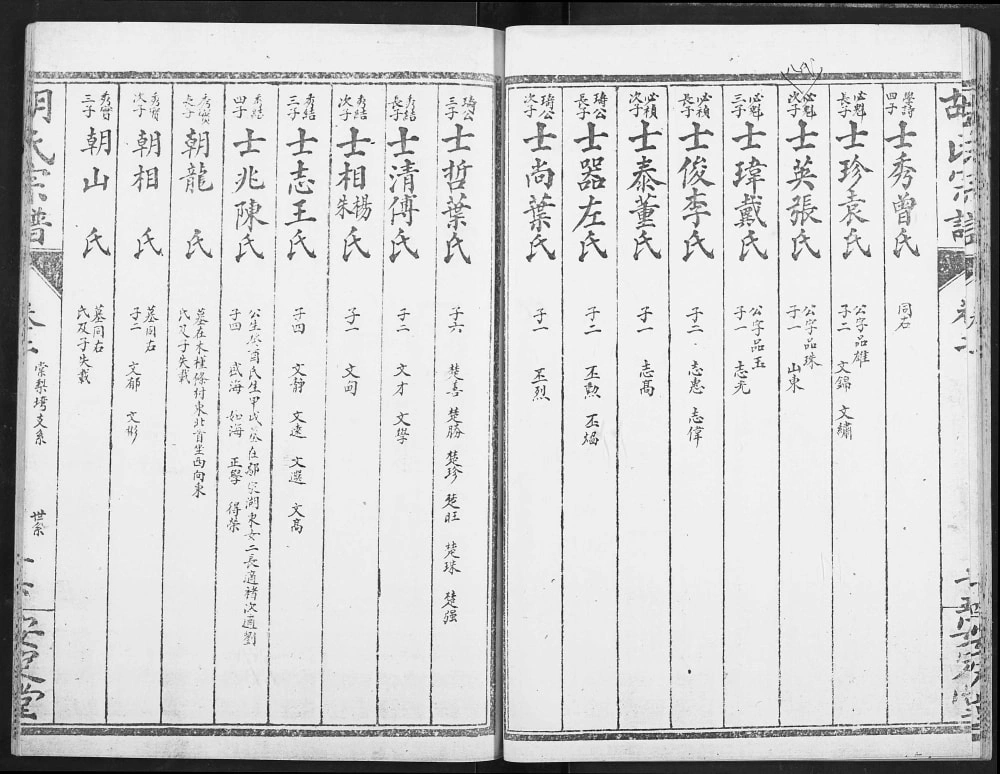 學詩四子 士秀曾氏 同右
必魁長子 士珍袁氏 公字品雄 子二 文錦 文繡
必魁次子 士英張氏 公字品珠 子一 山東
必魁三子 士瑋戴氏 公字品玉 子一 志光
必禎長子 士俊李氏 子二 志惠 志偉
必禎次子 士泰董氏 子一 志高
琦公長子 士器左氏 子二 丕勲
琦公次子 士尚葉氏 子一 丕烈
琦公三子 士哲葉氏 子六 楚喜 楚勝 楚珍 楚旺 楚珠 楚强
秀結長子 士清傅氏 子二 文才 文學
秀結次子 士相楊朱氏 子一
秀結三子 士志王氏 子四 文靜 文遠 文選 文高
秀結四子 士兆陳氏 公生癸酉氏生甲戌墓在鄔家湖東女二長適褚次適劉 子四 武海 如海 正學 得榮
長子 朝龍 氏 墓在木槿條村東北首坐西向東 氏及子失載
次子 朝相 氏 墓同右 子二 文郁 文彬
三子 朝山 氏 墓同右 氏及子失載
胡氏宗譜 卷二 棠梨塆支系 世系 安定堂